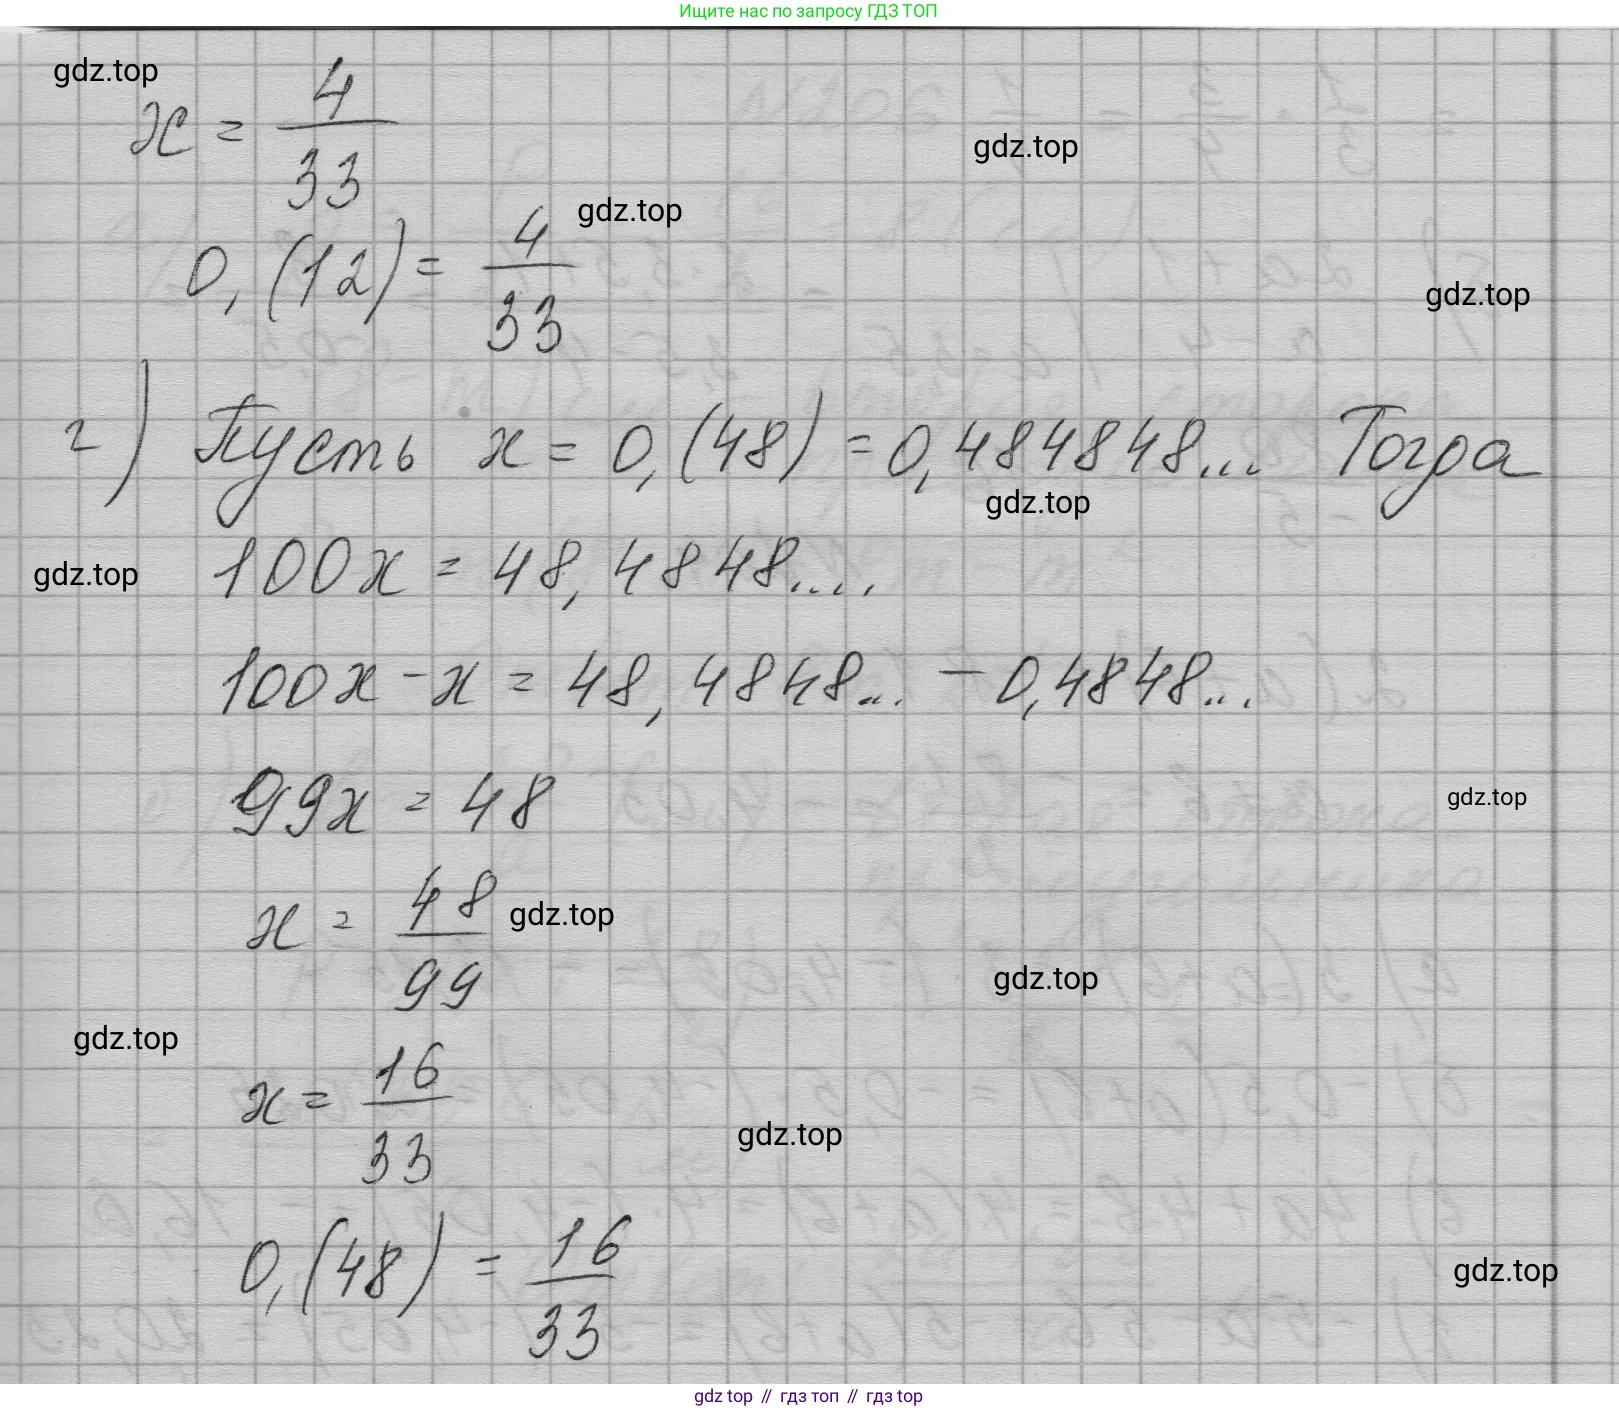 Ищите нас по запросу ГДЗ ТОП
gdz.top
x = 4/33
gdz.top
gdz.top
0,(12) = 4/33
gdz.top
г) Пусть x = 0,(48) = 0,484848... Тогда
gdz.top
gdz.top
100x = 48,4848....,
100x - x = 48,4848... - 0,4848...
99x = 48
gdz.top
x = 48/99
gdz.top
gdz.top
gdz.top
x = 16/33
gdz.top
0,(48) = 16/33
gdz.top
gdz top // гдз топ // гдз top